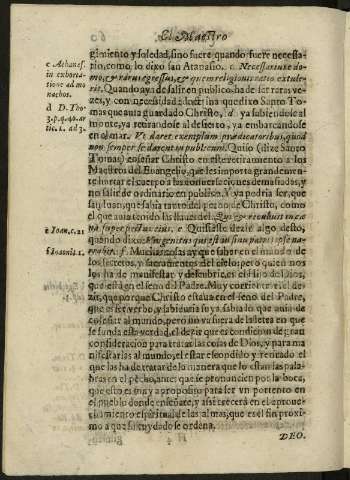 El Maestro
gimiento y soledad, sino fuere quando fuere necessa-
rio, como lo dixo san Atanasio. c Necessarius e do-
mo, & rarus egressus, & quem religionis ratio extule-
rit. Quando aya de salir en publico ha de ser raras ve-
zes, y con necessidad: doctrina que dixo Santo To-
mas que auia guardado Christo, d ya subiendose al
monte, ya retirandose al desierto, ya embarcandose
en el mar. Vt daret exemplum praedicatoribus, quod
non semper se darent in publicum. Quiso (dize Santo
Tomas) enseñar Christo en este retiramiento a los
Maestros del Euangelio, que les importa grandemen-
te hurtar el cuerpo a las conuersaciones demasiadas, y
no salir de ordinario en publico. Y ya podria ser, que
san Iuan, que sabia tanto del pecho de Christo, como
el que auia tenido las llaues del. Qui & recubuit in cæ
na super pectus eius, e Quisiesse dezir algo desto,
quando dixo: Vnigenitus qui est in sinu patris ipse na-
rrabit. f Muchas cosas ay que saber en el mundo de
los secretos, y sacramentos del cielo, pero quien nos
los ha de manifestar y descubrir, es el Hijo de Dios,
que está en el seno del Padre. Muy corriente es el de-
zir, que porque Christo estaua en el seno del Padre,
que es Verbo, y sabiduria suya, sabia lo que auia de
enseñar al mundo, pero no va fuera de la letra en que
se funda esta verdad, el dezir que es condicion de gran
consideracion para tratar las cosas de Dios, y para ma
nifestarlas al mundo, el estar escondido y retirado el
que las ha de tratar: de la manera que lo estan las pala-
bras en el pecho, antes que se pronuncien por la boca,
que esto es muy a proposito para ser vn portento en
el pueblo donde enseñare, y assi crecerá en el aproue-
chamiento espiritual de las almas, que es el fin proxi-
mo a que su cuydado se ordena.
DEO.
c Athanas.
in exhorta-
tione ad mo
nachos.
d D. Tho.
3. p. q. 40. ar
tic. 1. ad 3.
e Ioan. c. 21
f Ioannis 1.